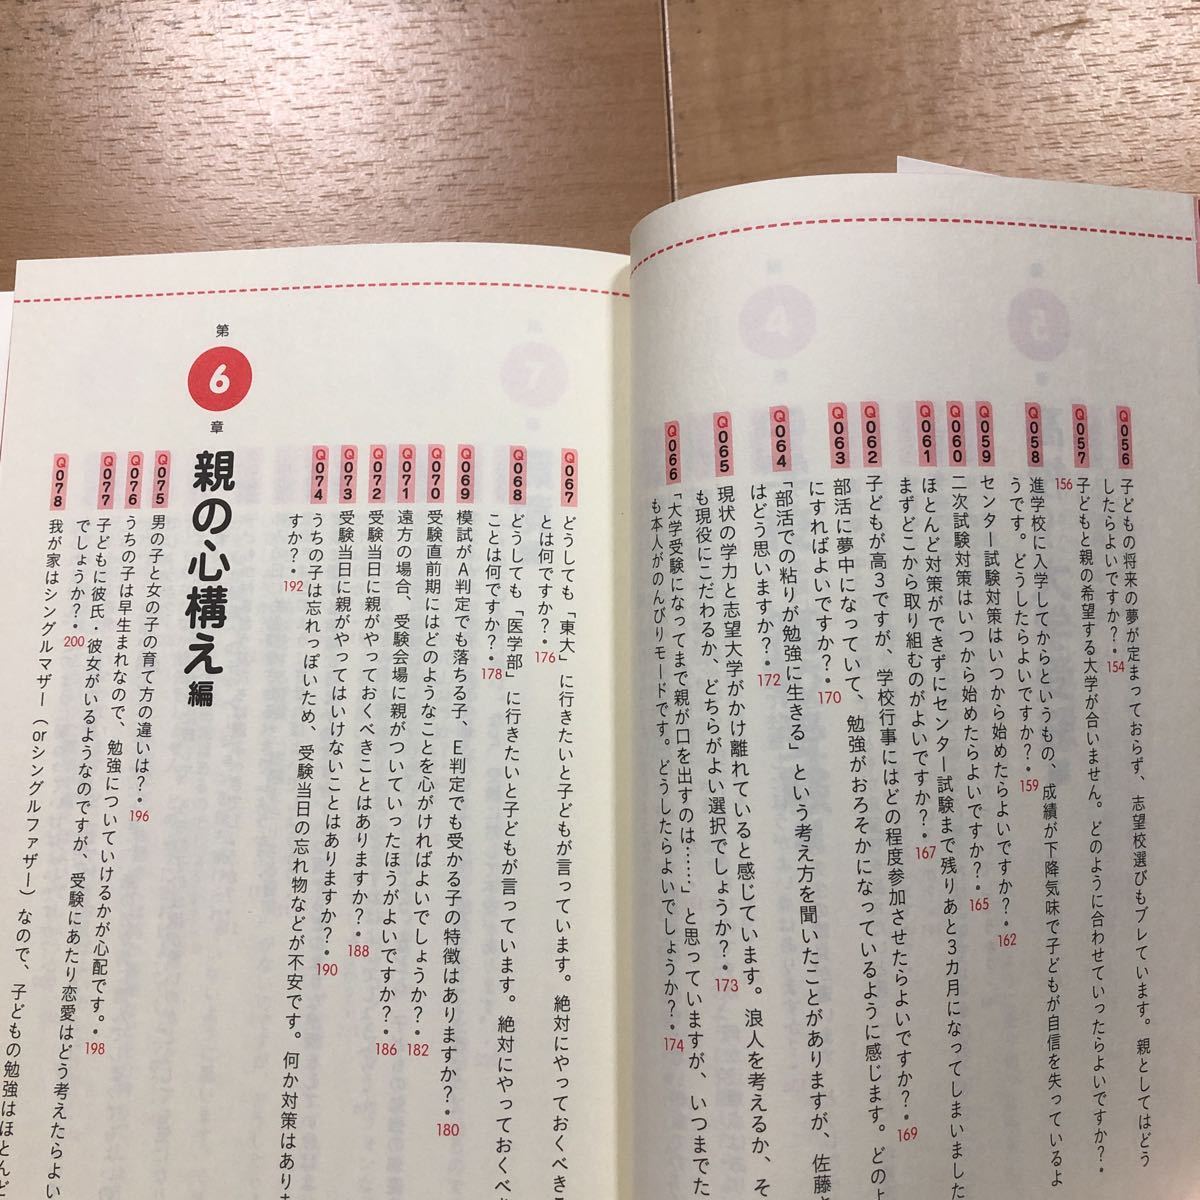 Q056 子どもの将来の夢が定まっておらず、志望校選びもブレています。親としてはどう
したらよいですか？● 154
Q057 子どもと親の希望する大学が合いません。どのように合わせていったらよいですか？●
156
Q058 進学校に入学してからというもの、成績が下降気味で子どもが自信を失っているよ
うです。どうしたらよいですか？● 159
Q059 センター試験対策はいつから始めたらよいですか？● 162
Q060 二次試験対策はいつから始めたらよいですか？● 165
Q061 ほとんど対策ができずにセンター試験まで残りあと3カ月になってしまいました
まずどこから取り組むのがよいですか？● 167
Q062 子どもが高3ですが、学校行事にはどの程度参加させたらよいですか？● 169
Q063 部活に夢中になっていて、勉強がおろそかになっているように感じます。どの
にすればよいですか？● 170
Q064 「部活での粘りが勉強に生きる」という考え方を聞いたことがありますが、佐藤
はどう思いますか？● 172
Q065 現状の学力と志望大学がかけ離れていると感じています。浪人を考えるか、そ
も現役にこだわるか、どちらがよい選択でしょうか？● 173
Q066 「大学受験になってまで親が口を出すのは……」と思っていますが、いつまでた
も本人がのんびりモードです。どうしたらよいでしょうか？● 174
Q067 どうしても「東大」に行きたいと子どもが言っています。絶対にやっておくべき
とは何ですか？● 176
Q068 どうしても「医学部」に行きたいと子どもが言っています。絶対にやっておくべ
ことは何ですか？● 178
Q069 模試がA判定でも落ちる子、E判定でも受かる子の特徴はありますか？● 180
Q070 受験直前期にはどのようなことを心がければよいでしょうか？● 182
Q071 遠方の場合、受験会場に親がついていったほうがよいですか？● 186
Q072 受験当日に親がやっておくべきことはありますか？● 188
Q073 受験当日に親がやってはいけないことはありますか？● 190
Q074 うちの子は忘れっぽいため、受験当日の忘れ物などが不安です。何か対策はあり
すか？● 192
第6章 親の心構え編
Q075 男の子と女の子の育て方の違いは？● 196
Q076 うちの子は早生まれなので、勉強についていけるかが心配です。● 198
Q077 子どもに彼氏・彼女がいるようなのですが、受験にあたり恋愛はどう考えたらよい
でしょうか？● 200
Q078 我が家はシングルマザー（orシングルファザー）なので、子どもの勉強はほとんど